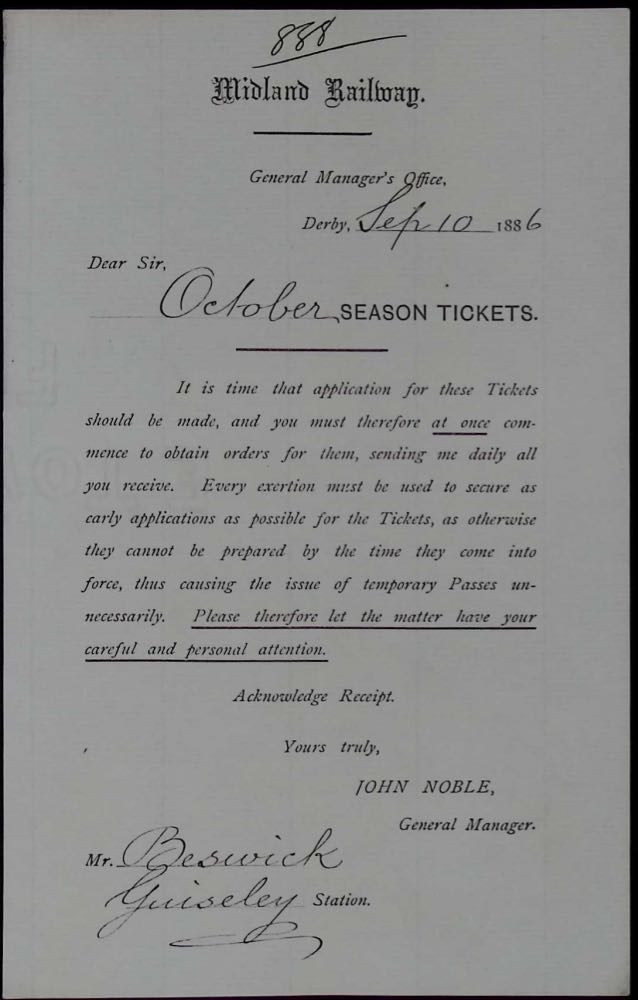 888
Midland Railway.
General Manager's Office,
Derby, Sep 10 1886
Dear Sir,
October SEASON TICKETS.
It is time that application for these Tickets
should be made, and you must therefore at once com-
mence to obtain orders for them, sending me daily all
you receive. Every exertion must be used to secure as
early applications as possible for the Tickets, as otherwise
they cannot be prepared by the time they come into
force, thus causing the issue of temporary Passes un-
necessarily. Please therefore let the matter have your
careful and personal attention.
Acknowledge Receipt.
Yours truly,
JOHN NOBLE,
General Manager.
Mr. Beswick
Guiseley Station.